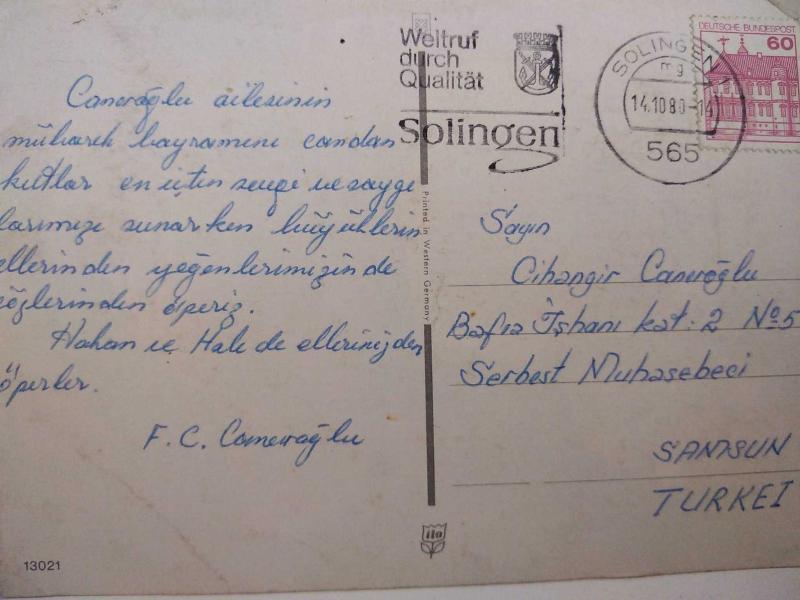 Caneroğlu ailesinin
mübarek bayramını candan
kutlar en içten sevgi ve saygı
larımızı sunarken büyüklerin
ellerinden yeğenlerimizinde
gözlerinden öperiz.
Hakan ve Hale de ellerinizden
öperler.
F. C. Caneroğlu
13021
Weltruf
durch
Qualität
Solingen
SOLINGEN
mg
14.10.80-14
565
DEUTSCHE BUNDESPOST
60
Printed in Western Germany
Sayın
Cihangir Caneroğlu
Bafra İşhanı kat: 2 No 5
Serbest Muhasebeci
SAMSUN
TURKEI
ilo